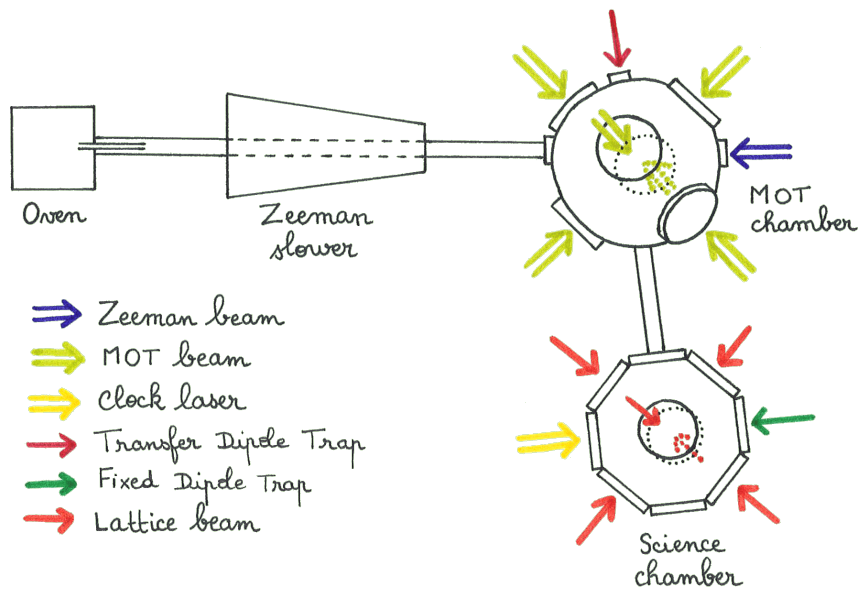 Oven
Zeeman
slower
MOT
chamber
Zeeman beam
MOT beam
Clock laser
Transfer Dipole Trap
Fixed Dipole Trap
Lattice beam
Science
chamber